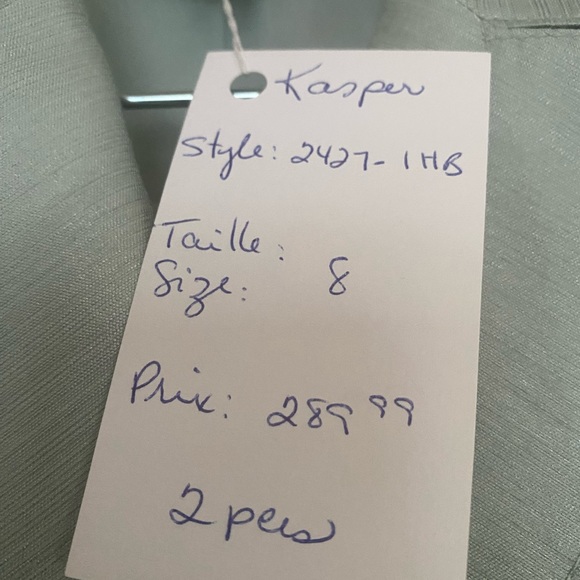 Kasper
Style: 2427-1HB
Taille:
Size: 8
Prix: 289 99
2 pces